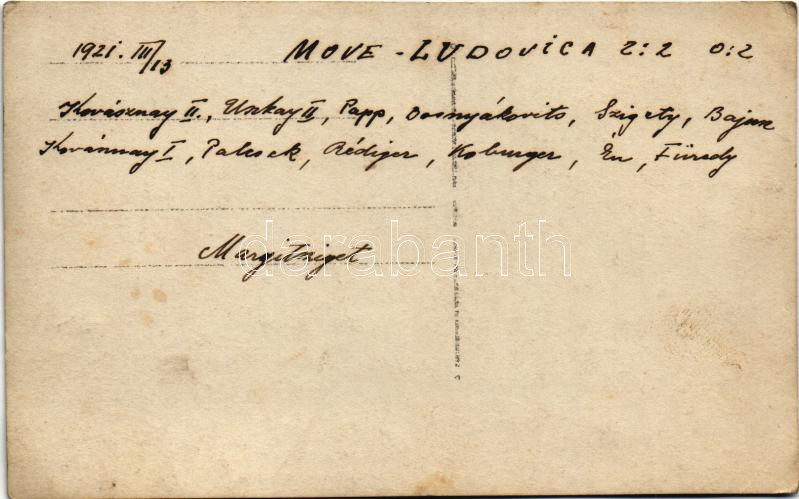 1921. III/13 MOVE - LUDOVICA 2:2 0:2
Kovásznay II., Uzkay II, Papp, Bosnyákovits, Szigety, Bajza
Kovásznay I, Palcsek, Rédiger, Koburger, Én, Füredy
Margitsziget
darabanth